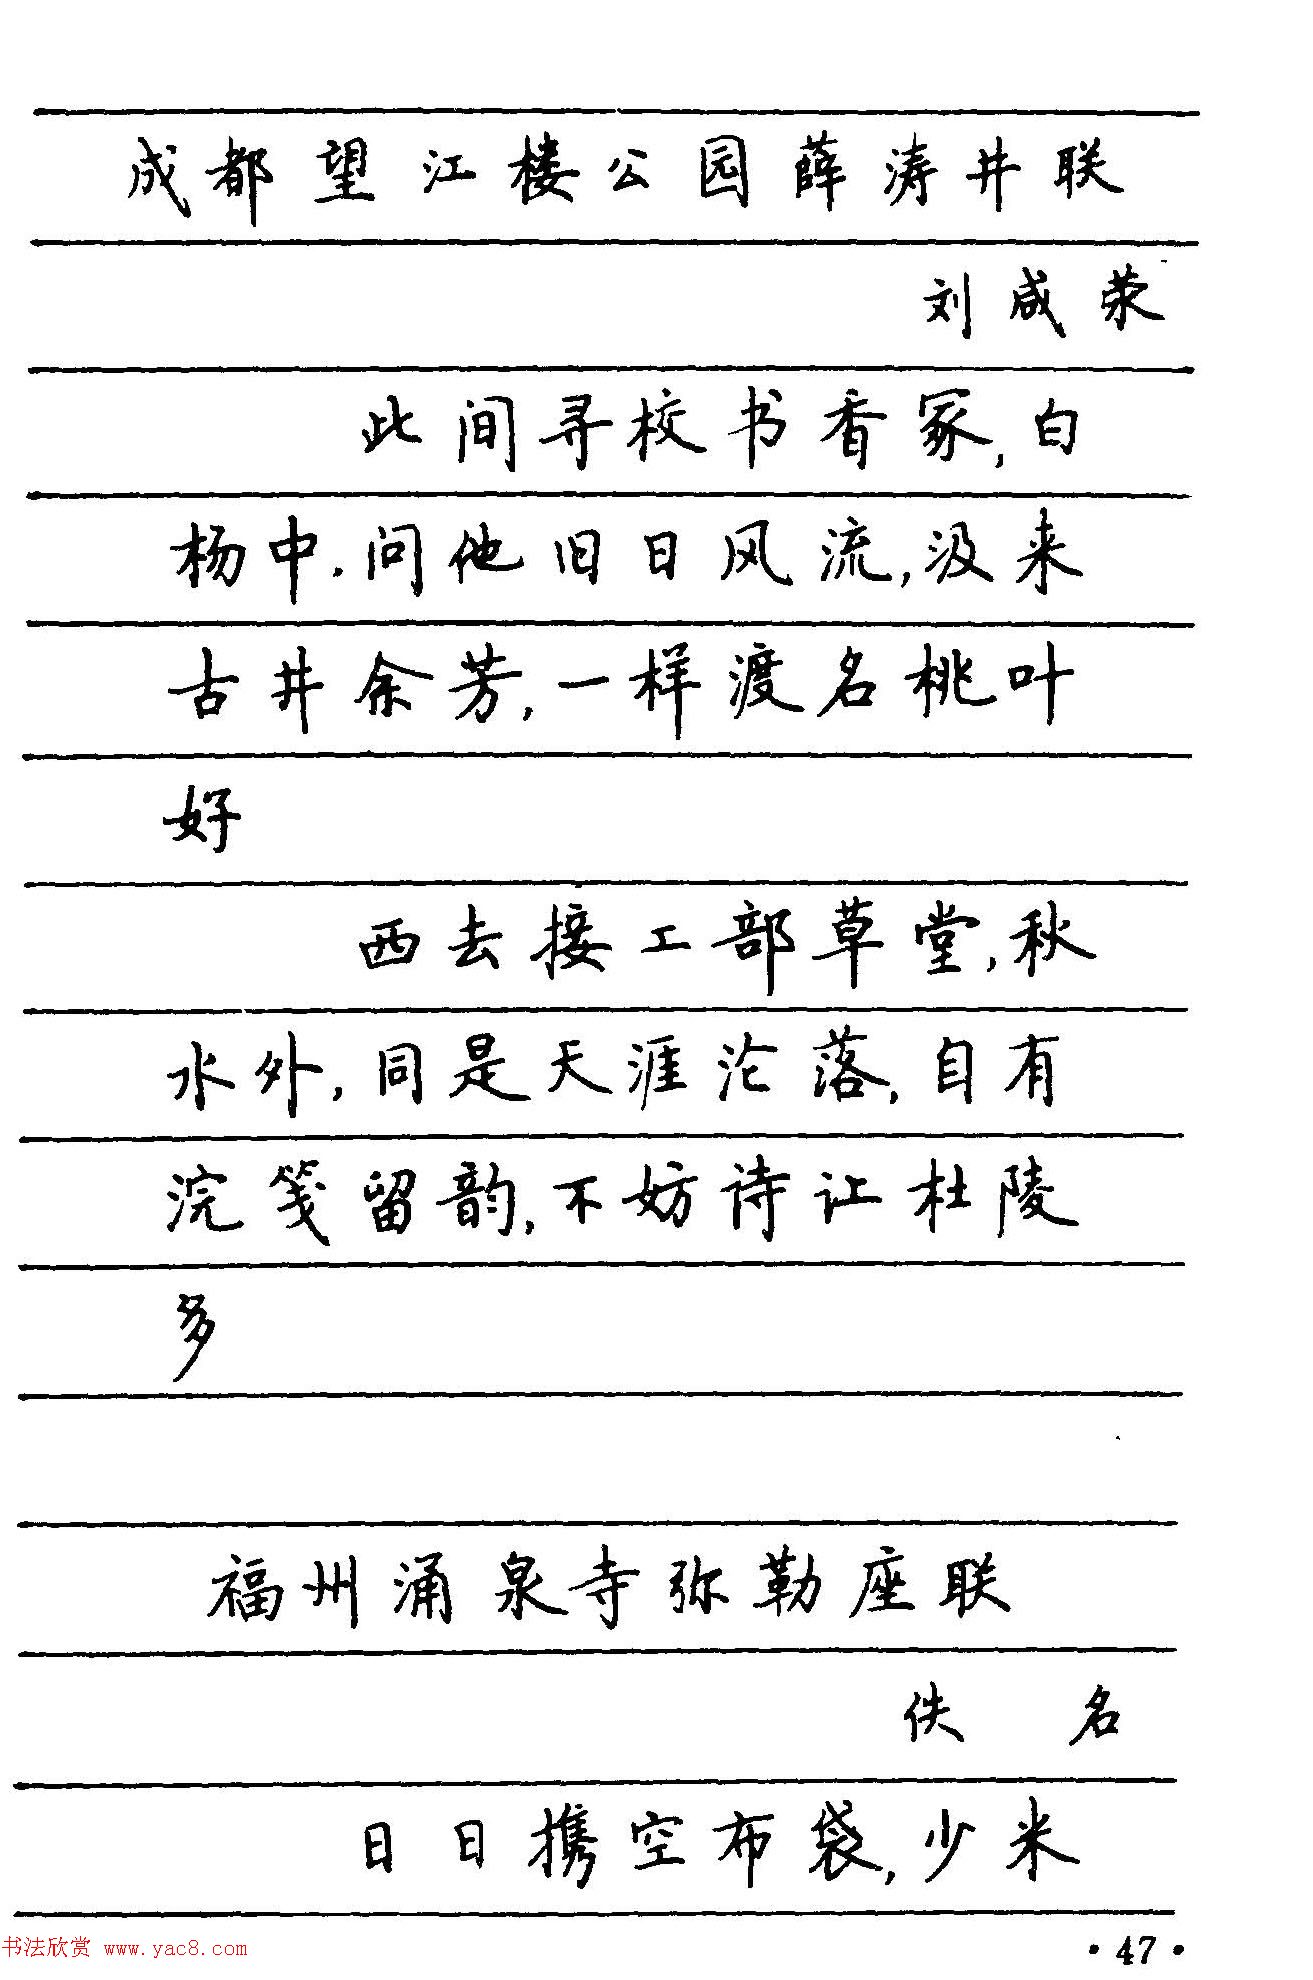 成都望江楼公园薛涛井联
刘咸荥
此间寻校书香冢,白
杨中.问他旧日风流,汲来
古井余芳,一样渡名桃叶
好
西去接工部草堂,秋
水外,同是天涯沦落,自有
浣笺留韵,不妨诗让杜陵
多
福州涌泉寺弥勒座联
佚 名
日日携空布袋,少米
书法欣赏 www.yac8.com
·47·